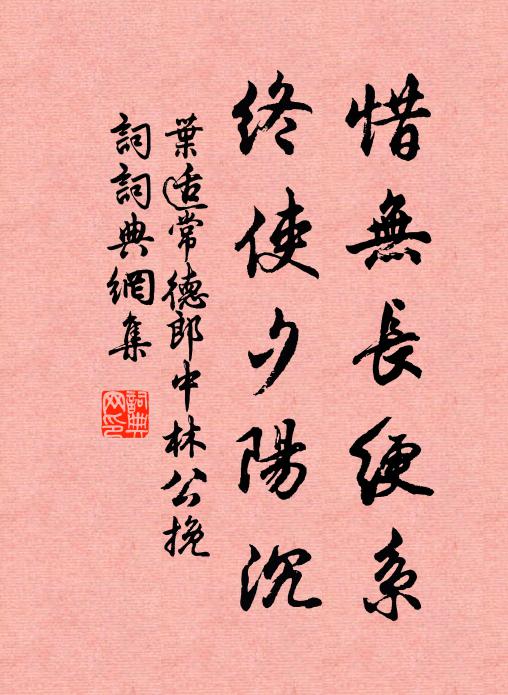 惜無長綆系
終使夕陽沉
葉适常德郎中林公挽
詞詞典網集
詞典
网印